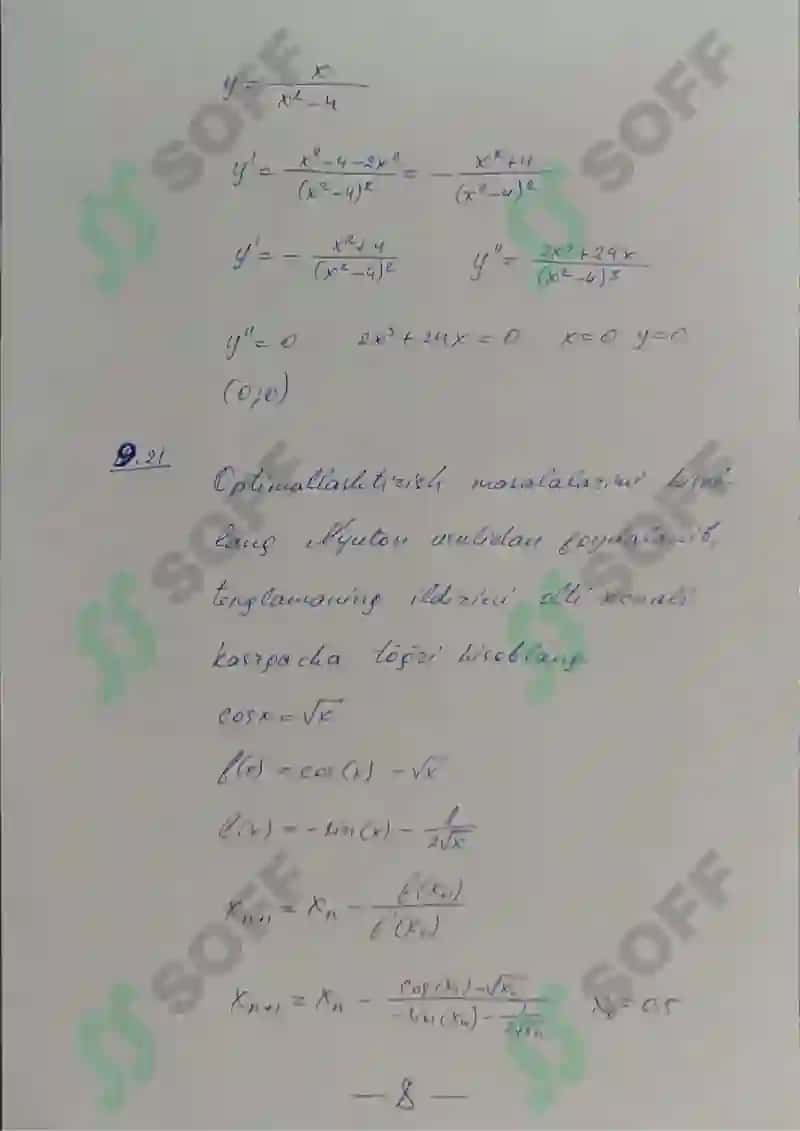 y = x / (x² - 4)
y' = (x² - 4 - 2x²) / (x² - 4)² = - (x² + 4) / (x² - 4)²
y' = - (x² + 4) / (x² - 4)²   y'' = (2x³ + 24x) / (x² - 4)³
y'' = 0   2x³ + 24x = 0   x = 0 y = 0
(0; 0)
9.21
Optimallashtirish masalalarini
lang Nyuton usulidan foydalanib,
tenglamaning ildizini olti xonali
kasrgacha to'g'ri hisoblang
cos x = √x
f(x) = cos(x) - √x
f'(x) = - sin(x) - 1 / (2√x)
xₙ₊₁ = xₙ - f(xₙ) / f'(xₙ)
xₙ₊₁ = xₙ - (cos(xₙ) - √xₙ) / (- sin(xₙ) - 1 / (2√xₙ))   x₀ = 0.5
— 8 —
SOFF
SOFF
SOFF
SOFF
SOFF
SOFF